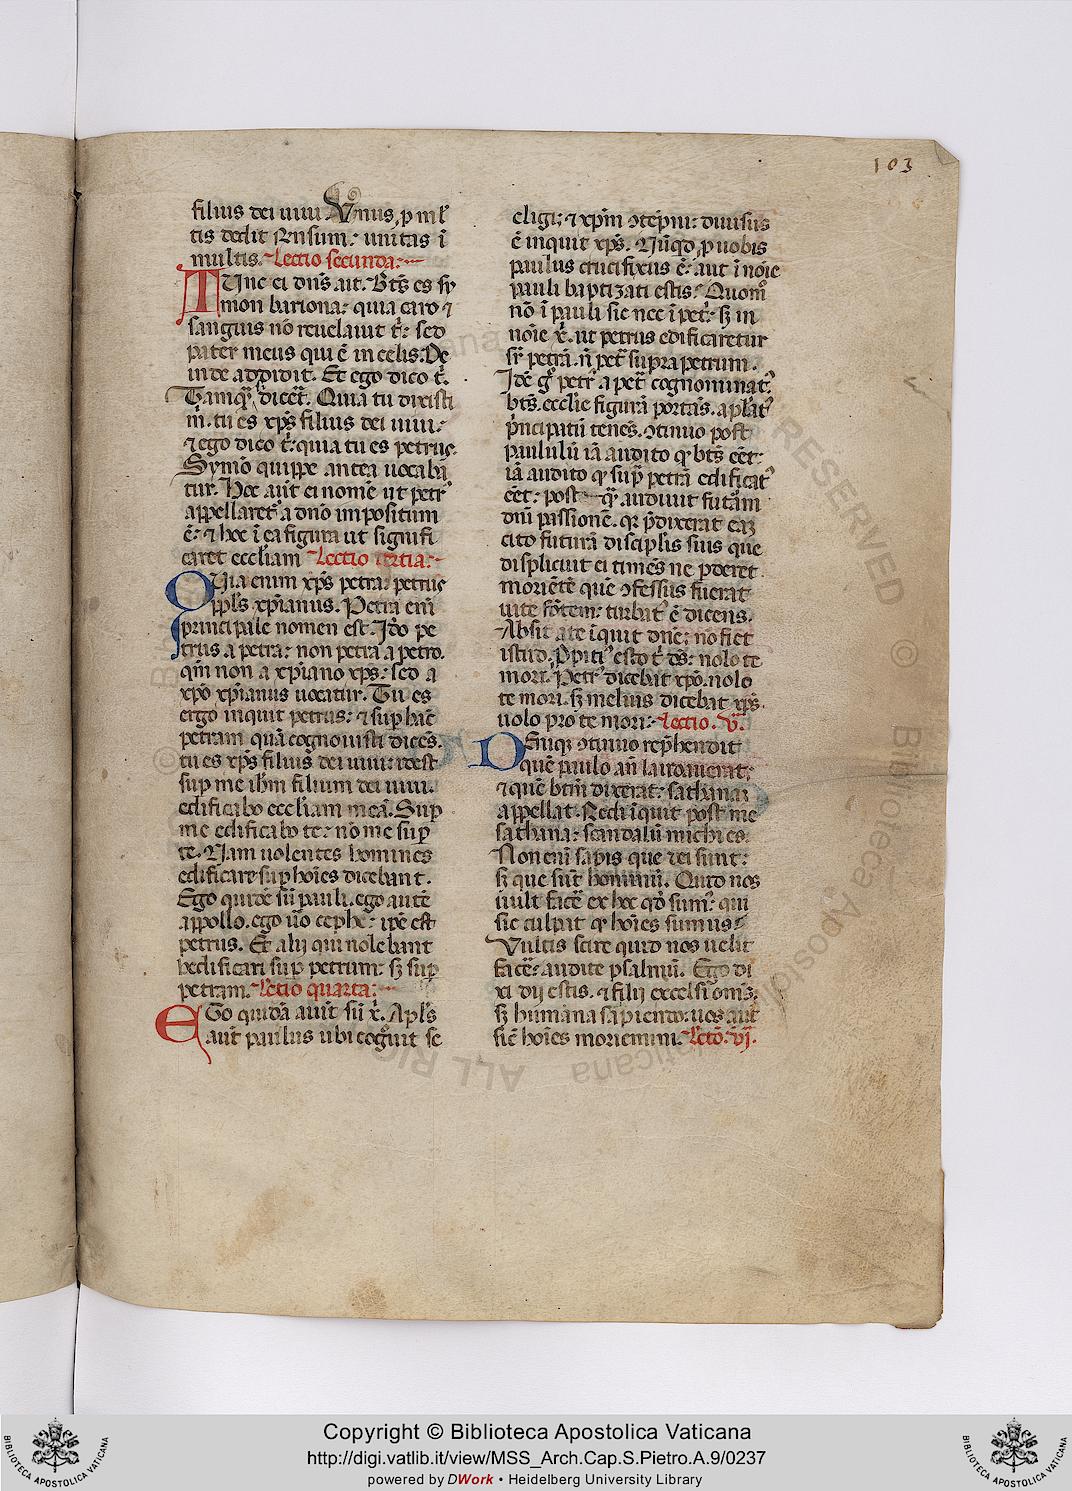 103
filius dei uiui Vnus, ꝓ ml̓
tis dedit Rn̄sum: unitas ī
multis. Lectio secunda:
TUnc ei dn̄s ait. Bt̄s es sy
mon bariona: quia caro ⁊
sanguis nō reuelauit t̓: sed
pater meus qui ē in celis. De
inde addidit. Et ego dico t̓.
Tamqͣ diceret. Quia tu dixisti
m̓. tu es xp̄s filius dei uiui:
⁊ ego dico t̓: quia tu es petrus
Symō quippe antea uocabā
tur. Hoc aūt ei nomē ut petrꝰ
appellaret̓ a dn̄o impositum
ē: ⁊ hoc ī ea figura ut signifi
caret eccl̄iam Lectio tertia:
QUia enim xp̄s petra: petrus
ppl̄s xp̄ianus. Petra enī
principale nomen est. Idō pe
trus a petra: non petra a petro.
qm̄ non a xp̄iano xp̄s: sed a
xp̄o xp̄ianus uocatur. Tu es
ergo inquit petrus: ⁊ suꝑ hāc
petram quā cognouisti dicēs.
tu es xp̄s filius dei uiui: idest
suꝑ me ip̄m filium dei uiui.
edificabo eccl̄iam meā. Suꝑ
me edificabo te: nō me suꝑ
te. Nam uolentes homines
edificare suꝑ hoīes dicebant.
Ego quidē sū pauli. ego autē
appollo. ego uō cephe: ipē est
petrus. Et alij qui nolebant
hedificari suꝑ petrum: sꝫ suꝑ
petram. Lectio quarta:
EGo quidā aūt sū x̓. Apl̄s
aūt paulus ubi cogͦuit se
eligi: ⁊ xp̄m ꝯtēpni: diuisus
ē inquit xp̄s. Nūqd̓ ꝓ uobis
paulus crucifixus ē: aut ī noīe
pauli baptizati estis: Quomͦ
nō ī pauli sic nec ī pet̓: sꝫ in
noīe x̓. ut petrus edificaretur
sr̄ petrā. n̄ pet̓ supra petrum.
Idē gͦ petrꝰ a pet̓ cognominatꝰ.
bt̄s. ecclīe figurā portās. apl̄atꝰ
p̓ncipatū tenēs. ꝯtinuo post
paululū iā audito qꝛ bt̄s eēt:
iā audito qꝛ suꝑ petrā edificatꝰ
eēt: post qͣ audiuit futāͬm
dn̄i passionē. qꝛ p̄dixerat eaꝫ
cito futurā discipl̄is suis que
displicuit ei timēs ne ꝑderet
moriētē quē ꝯfessus fuerat
uite fōtem: turbatꝰ ē dicens.
Absit a te īquit dn̄e: nō fiet
istud. Ꝓpitiꝰ esto t̓ ds̄: nolo te
mori. Petrꝰ dicebat xp̄o. nolo
te mori. sꝫ melius dicebat xp̄s.
uolo pro te mori: Lectio. v̄ͣ.
DEniqꝫ ꝯtinuo rep̄hendit
quē paulo an̄ laudauerat:
⁊ quē btm̄ dixerat: sathanaꝫ
appellat. Redi īquit post me
sathana: scandalū michi es.
Non enī sapis que dei sunt:
sꝫ que sūt hominū. Quid nos
uult facē ex hoc qd̄ sumꝰ: qui
sic culpat qꝛ hoīes sumus:
Vultis scire quid nos uelit
facē: audite psalmū. Ego di
xi dij estis. ⁊ filij excelsi om̄s.
sꝫ humana sapiendo. uos aūt
sic̄ hoīes moriemini. Lectō. vj.
Copyright © Biblioteca Apostolica Vaticana
http://digi.vatlib.it/view/MSS_Arch.Cap.S.Pietro.A.9/0237
powered by DWork • Heidelberg University Library
BIBLIOTECA APOSTOLICA VATICANA
BIBLIOTECA APOSTOLICA VATICANA